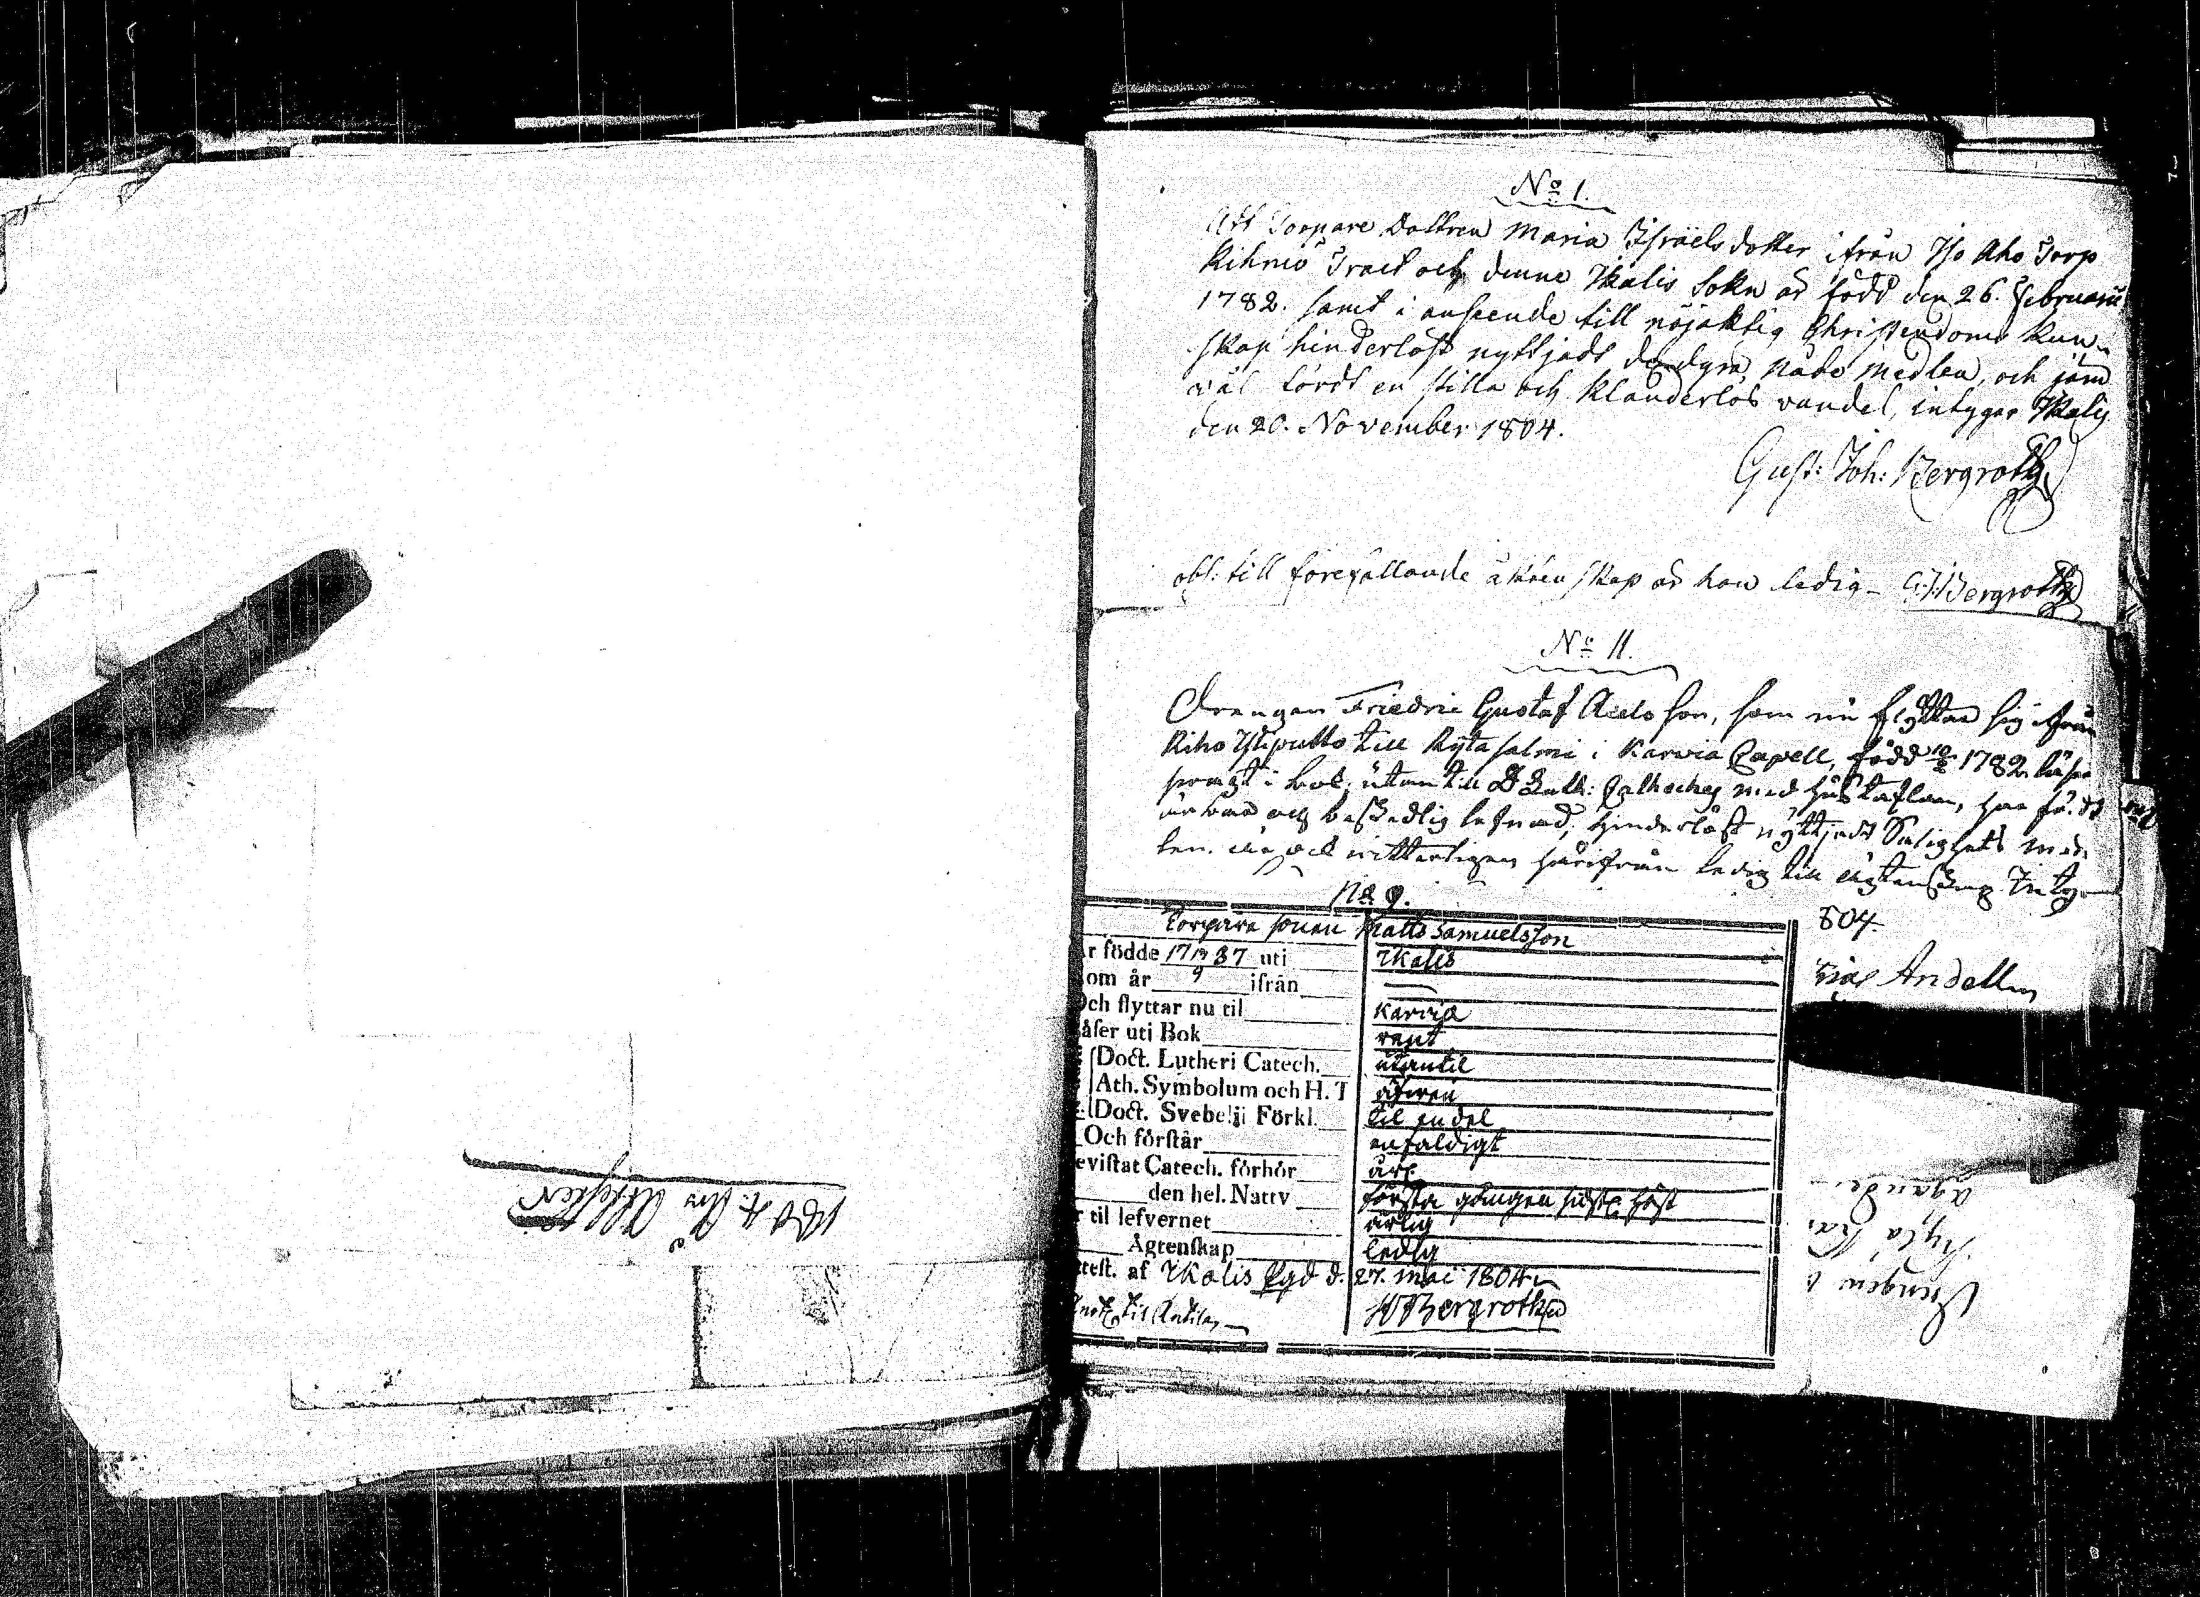 1804 Års Attester
No 1.
Att Torpare Dottren Maria Israelsdotter ifrån Iso Aho Torp
Kihniö Tract och denne Ikalis Sokn är född den 26. Februarii
1782. samt i anseende till nöjaktig Christendoms Kun-
skap hinderlöst nyttjadt de dyra nåde medlen, och jäm
väl fördt en stilla och klanderlös vandel, intygar Ikalis
den 20. November 1804.
Gust: Joh: Bergroth
obs: till förefallande äktenskap är hon ledig – G:J:Bergroth
No 11.
Drengen Friedric Gustaf Axels son, som nu flyttar sig ifrån
Kiho till Kyta salmi i Karvia Capell, född 1782. läser
i bok, utan till D Luth: med Hustaflan, har fördt
och beskedlig lefnad, hinderlöst nyttjadt Salighets med-
len. är och härifrån ledig till ägtenskap Intyg
804.
Andellin
No 9.
Torpare sonen Matts Samuelsson
är födde 17 87 uti Ikalis
om år ifrån
Och flyttar nu til Karvia
åser uti Bok rent
Doct. Lutheri Catech. utantil
Ath. Symbolum och H. T äfwen
Doct. Svebelii Förkl. til en del
Och förstår enfaldigt
evistat Catech. förhör
den hel. Nattv första gången sidste höst
til lefvernet ärlig
Ägtenskap ledig
ttest. af Ikalis Pgd d. 27. Maii 1804.
Bergroth
till Antila
Drengen
Kyla